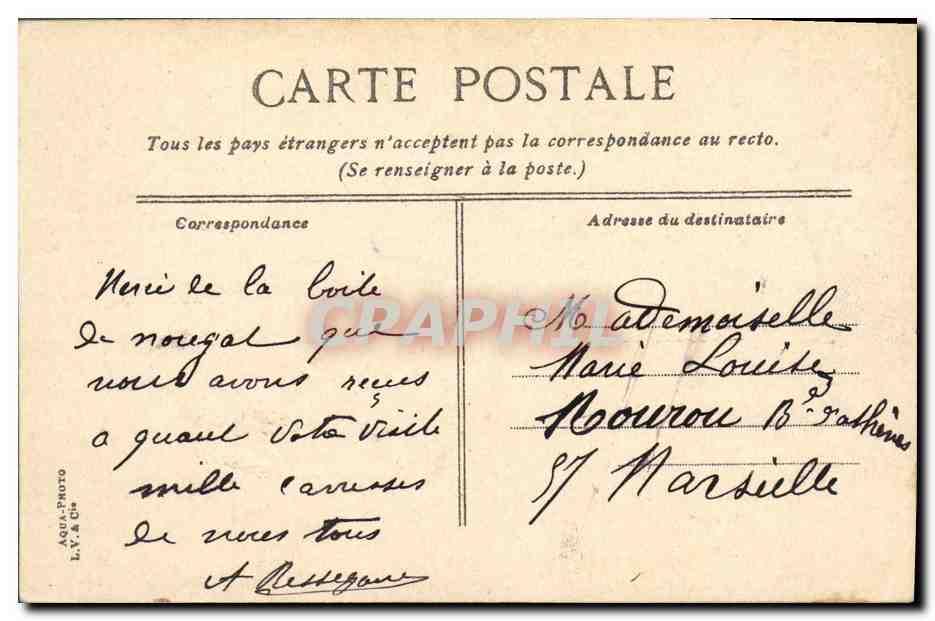 CARTE POSTALE
Tous les pays étrangers n'acceptent pas la correspondance au recto.
(Se renseigner à la poste.)
Correspondance
Merci de la boite
de nougat que
nous avons reçus
a quant votre visite
mille caresses
de nous tous
A
Adresse du destinataire
Mademoiselle
Marie Louise
Bd d'athènes
57 Marseille
AQUA-PHOTO
L.V. & Cie
CPAPHIL